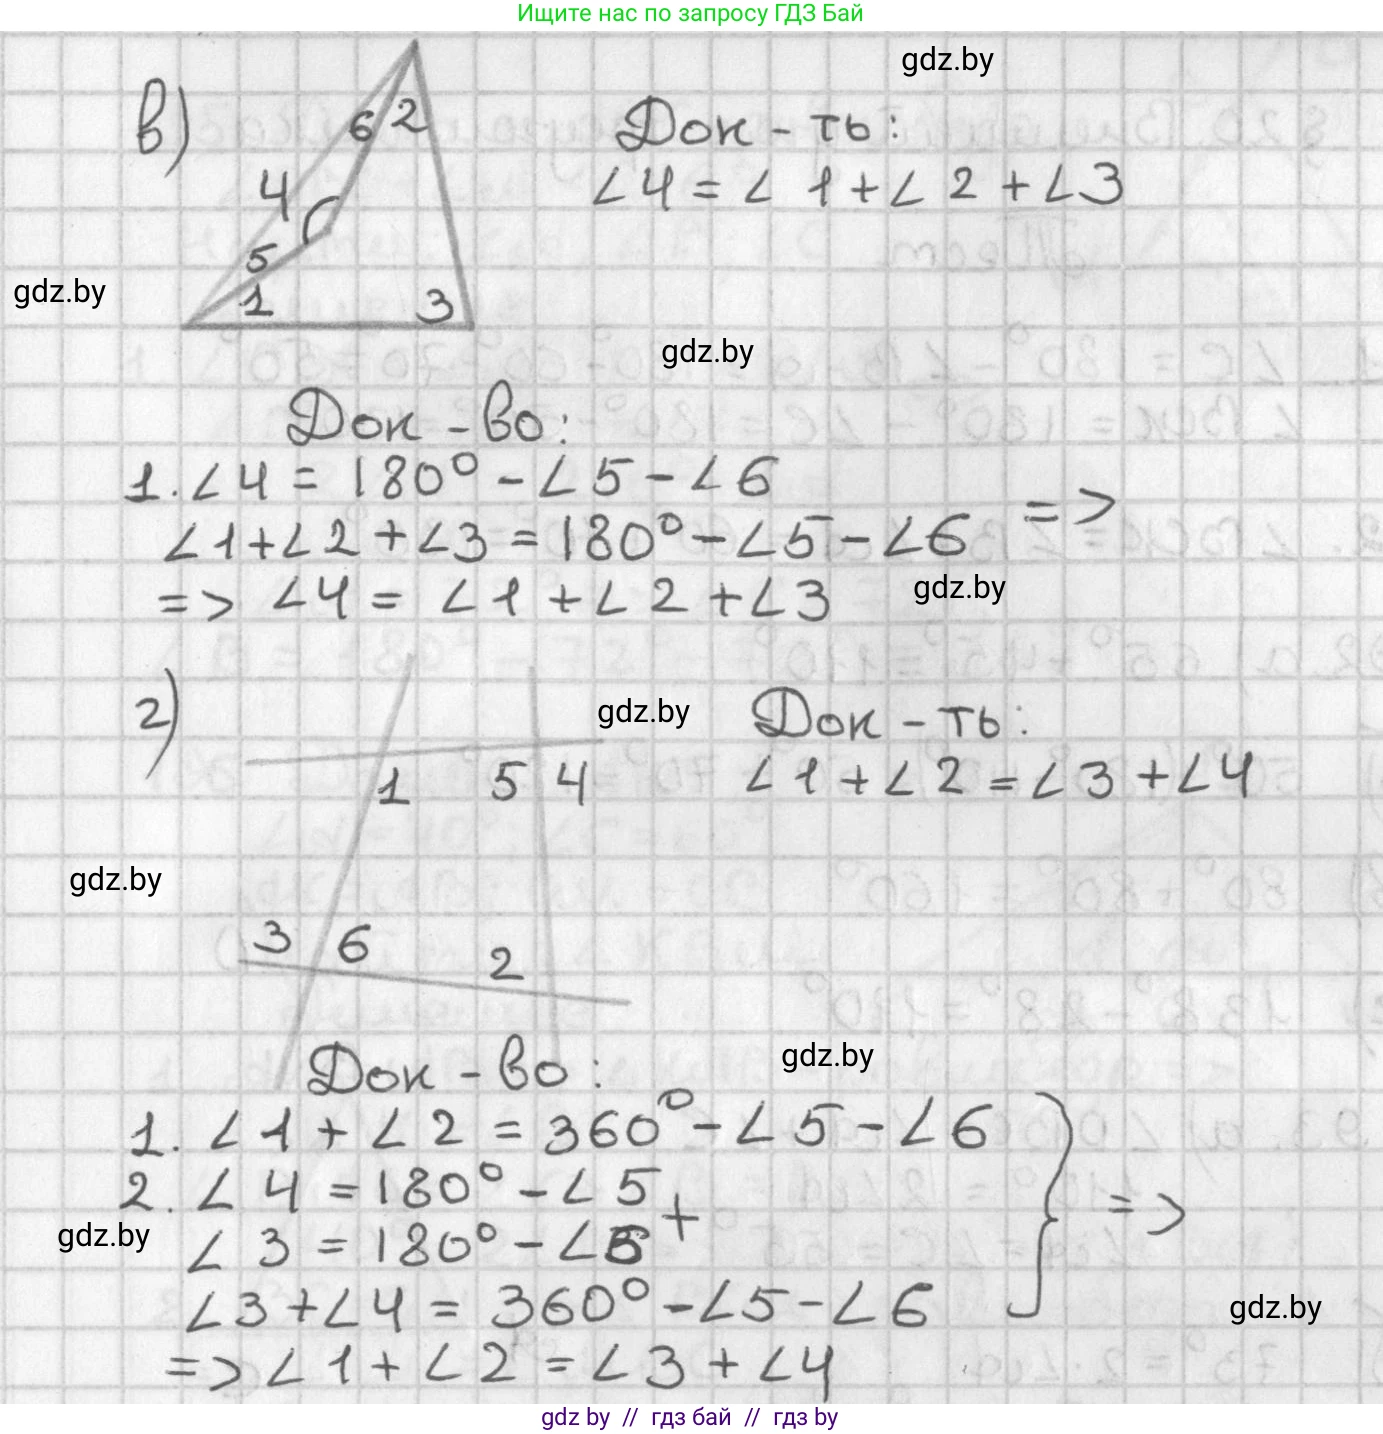 Ищите нас по запросу ГДЗ Бай
gdz.by
в)
6 2
4
5
1 3
Док - ть:
∠4 = ∠1 + ∠2 + ∠3
gdz.by
gdz.by
Док - во:
1. ∠4 = 180° - ∠5 - ∠6
∠1 + ∠2 + ∠3 = 180° - ∠5 - ∠6 =>
=> ∠4 = ∠1 + ∠2 + ∠3
gdz.by
г)
gdz.by
Док - ть:
∠1 + ∠2 = ∠3 + ∠4
1 5 4
gdz.by
3 6 2
Док - во:
gdz.by
1. ∠1 + ∠2 = 360° - ∠5 - ∠6
2. ∠4 = 180° - ∠5
+ =>
gdz.by
∠3 = 180° - ∠6
∠3 + ∠4 = 360° - ∠5 - ∠6
gdz.by
=> ∠1 + ∠2 = ∠3 + ∠4
gdz by // гдз бай // гдз by